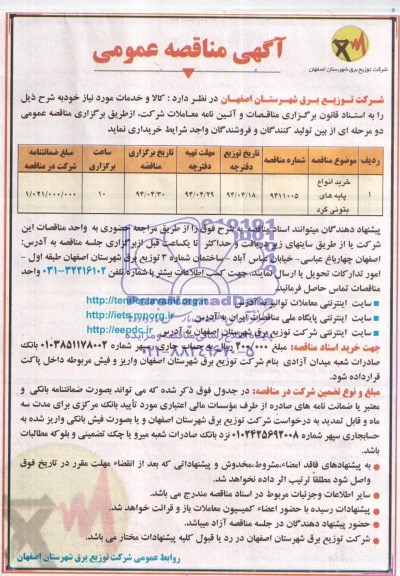 آگهی مناقصه عمومی
شرکت توزیع برق شهرستان اصفهان
شرکت توزیع برق شهرستان اصفهان در نظر دارد : کالا و خدمات مورد نیاز خود به شرح ذیل
را به استناد قانون برگزاری مناقصات و آئین نامه معاملات شرکت، از طریق برگزاری مناقصه عمومی
دو مرحله ای از بین تولید کنندگان و فروشندگان واجد شرایط خریداری نماید
ردیف موضوع مناقصه شماره مناقصه تاریخ توزیع دفترچه مهلت تهیه دفترچه تاریخ برگزاری مناقصه ساعت برگزاری مبلغ ضمانتنامه شرکت در مناقصه
۱ خرید انواع پایه های بتونی گرد ۹۴۱۱۰۰۵ ۹۴/۰۴/۱۸ ۹۴/۰۴/۲۹ ۹۴/۰۴/۳۰ ۱۰ ۱/۰۲۱/۰۰۰/۰۰۰
پیشنهاد دهندگان میتوانند اسناد مناقصه به شرح فوق را از طریق مراجعه حضوری به واحد مناقصات این
شرکت یا از طریق سایتهای زیر دریافت و حداکثر تا یکساعت قبل از برگزاری جلسه مناقصه به آدرس:
اصفهان چهارباغ عباسی- خیابان عباس آباد - ساختمان شماره ۳ توزیع برق شهرستان اصفهان طبقه اول -
امور تدارکات تحویل یا ارسال نمایند. جهت کسب اطلاعات بیشتر با شماره تلفن ۳۲۲۱۶۱۰۲-۰۳۱ واحد
مناقصات تماس حاصل فرمائید.
سایت اینترنتی معاملات توانیر به آدرس http://tender.tavanir.org.ir
سایت اینترنتی پایگاه ملی مناقصات ایران به آدرس http://iets.mporg.ir
سایت اینترنتی شرکت توزیع برق شهرستان اصفهان به آدرس http://eepdc.ir
جهت خرید اسناد مناقصه: مبلغ ریال به حساب جاری سپهر شماره ۰۱۰۳۸۵۱۱۷۸۰۰۲ بانک
صادرات شعبه میدان آزادی بنام شرکت توزیع برق شهرستان اصفهان واریز و فیش مربوطه داخل پاکت
قرار داده شود.
مبلغ و نوع تضمین شرکت در مناقصه: در جدول فوق ذکر شده که می تواند بصورت ضمانتنامه بانکی و
معتبر یا ضمانت نامه های صادره از طرف مؤسسات مالی اعتباری مورد تأیید بانک مرکزی برای مدت سه
ماه و قابل تمدید به درخواست شرکت توزیع برق شهرستان اصفهان و یا بصورت فیش بانکی واریز شده به
حسابجاری سپهر شماره ۰۱۰۲۴۲۵۶۹۲۰۰۸ نزد بانک صادرات شعبه میرو یا چک تضمینی و بلوکه مطالبات
باشد.
به پیشنهادهای فاقد امضاء، مشروط، مخدوش و پیشنهاداتی که بعد از انقضاء مهلت مقرر در تاریخ فوق
واصل شود مطلقا ترتیب اثر داده نخواهد شد.
سایر اطلاعات و جزئیات مربوط در اسناد مناقصه مندرج می باشد.
پیشنهادات رسیده با حضور اعضاء کمیسیون معاملات باز و قرائت خواهد شد.
حضور پیشنهاد دهندگان در جلسه مناقصه آزاد میباشد.
شرکت توزیع برق شهرستان اصفهان در رد یا قبول کلیه پیشنهادات مختار می باشد.
روابط عمومی شرکت توزیع برق شهرستان اصفهان